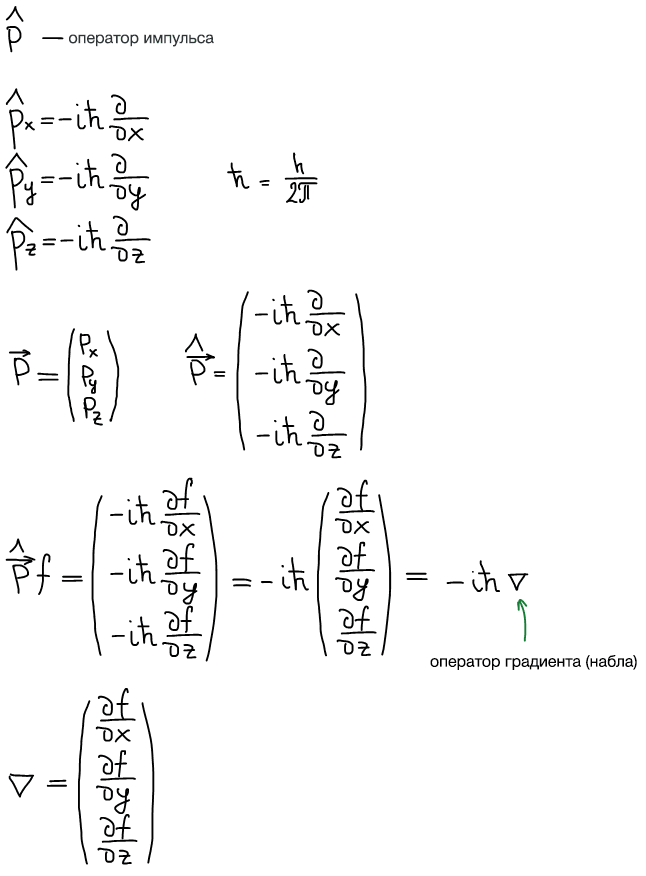 p̂ — оператор импульса
p̂ₓ = -iħ ∂/∂x
p̂_y = -iħ ∂/∂y ħ = h/2π
p̂_z = -iħ ∂/∂z
p⃗ = (pₓ p_y p_z) p̂⃗ = (-iħ ∂/∂x -iħ ∂/∂y -iħ ∂/∂z)
p̂⃗ f = (-iħ ∂f/∂x -iħ ∂f/∂y -iħ ∂f/∂z) = -iħ (∂f/∂x ∂f/∂y ∂f/∂z) = -iħ ∇
оператор градиента (набла)
∇ = (∂f/∂x ∂f/∂y ∂f/∂z)